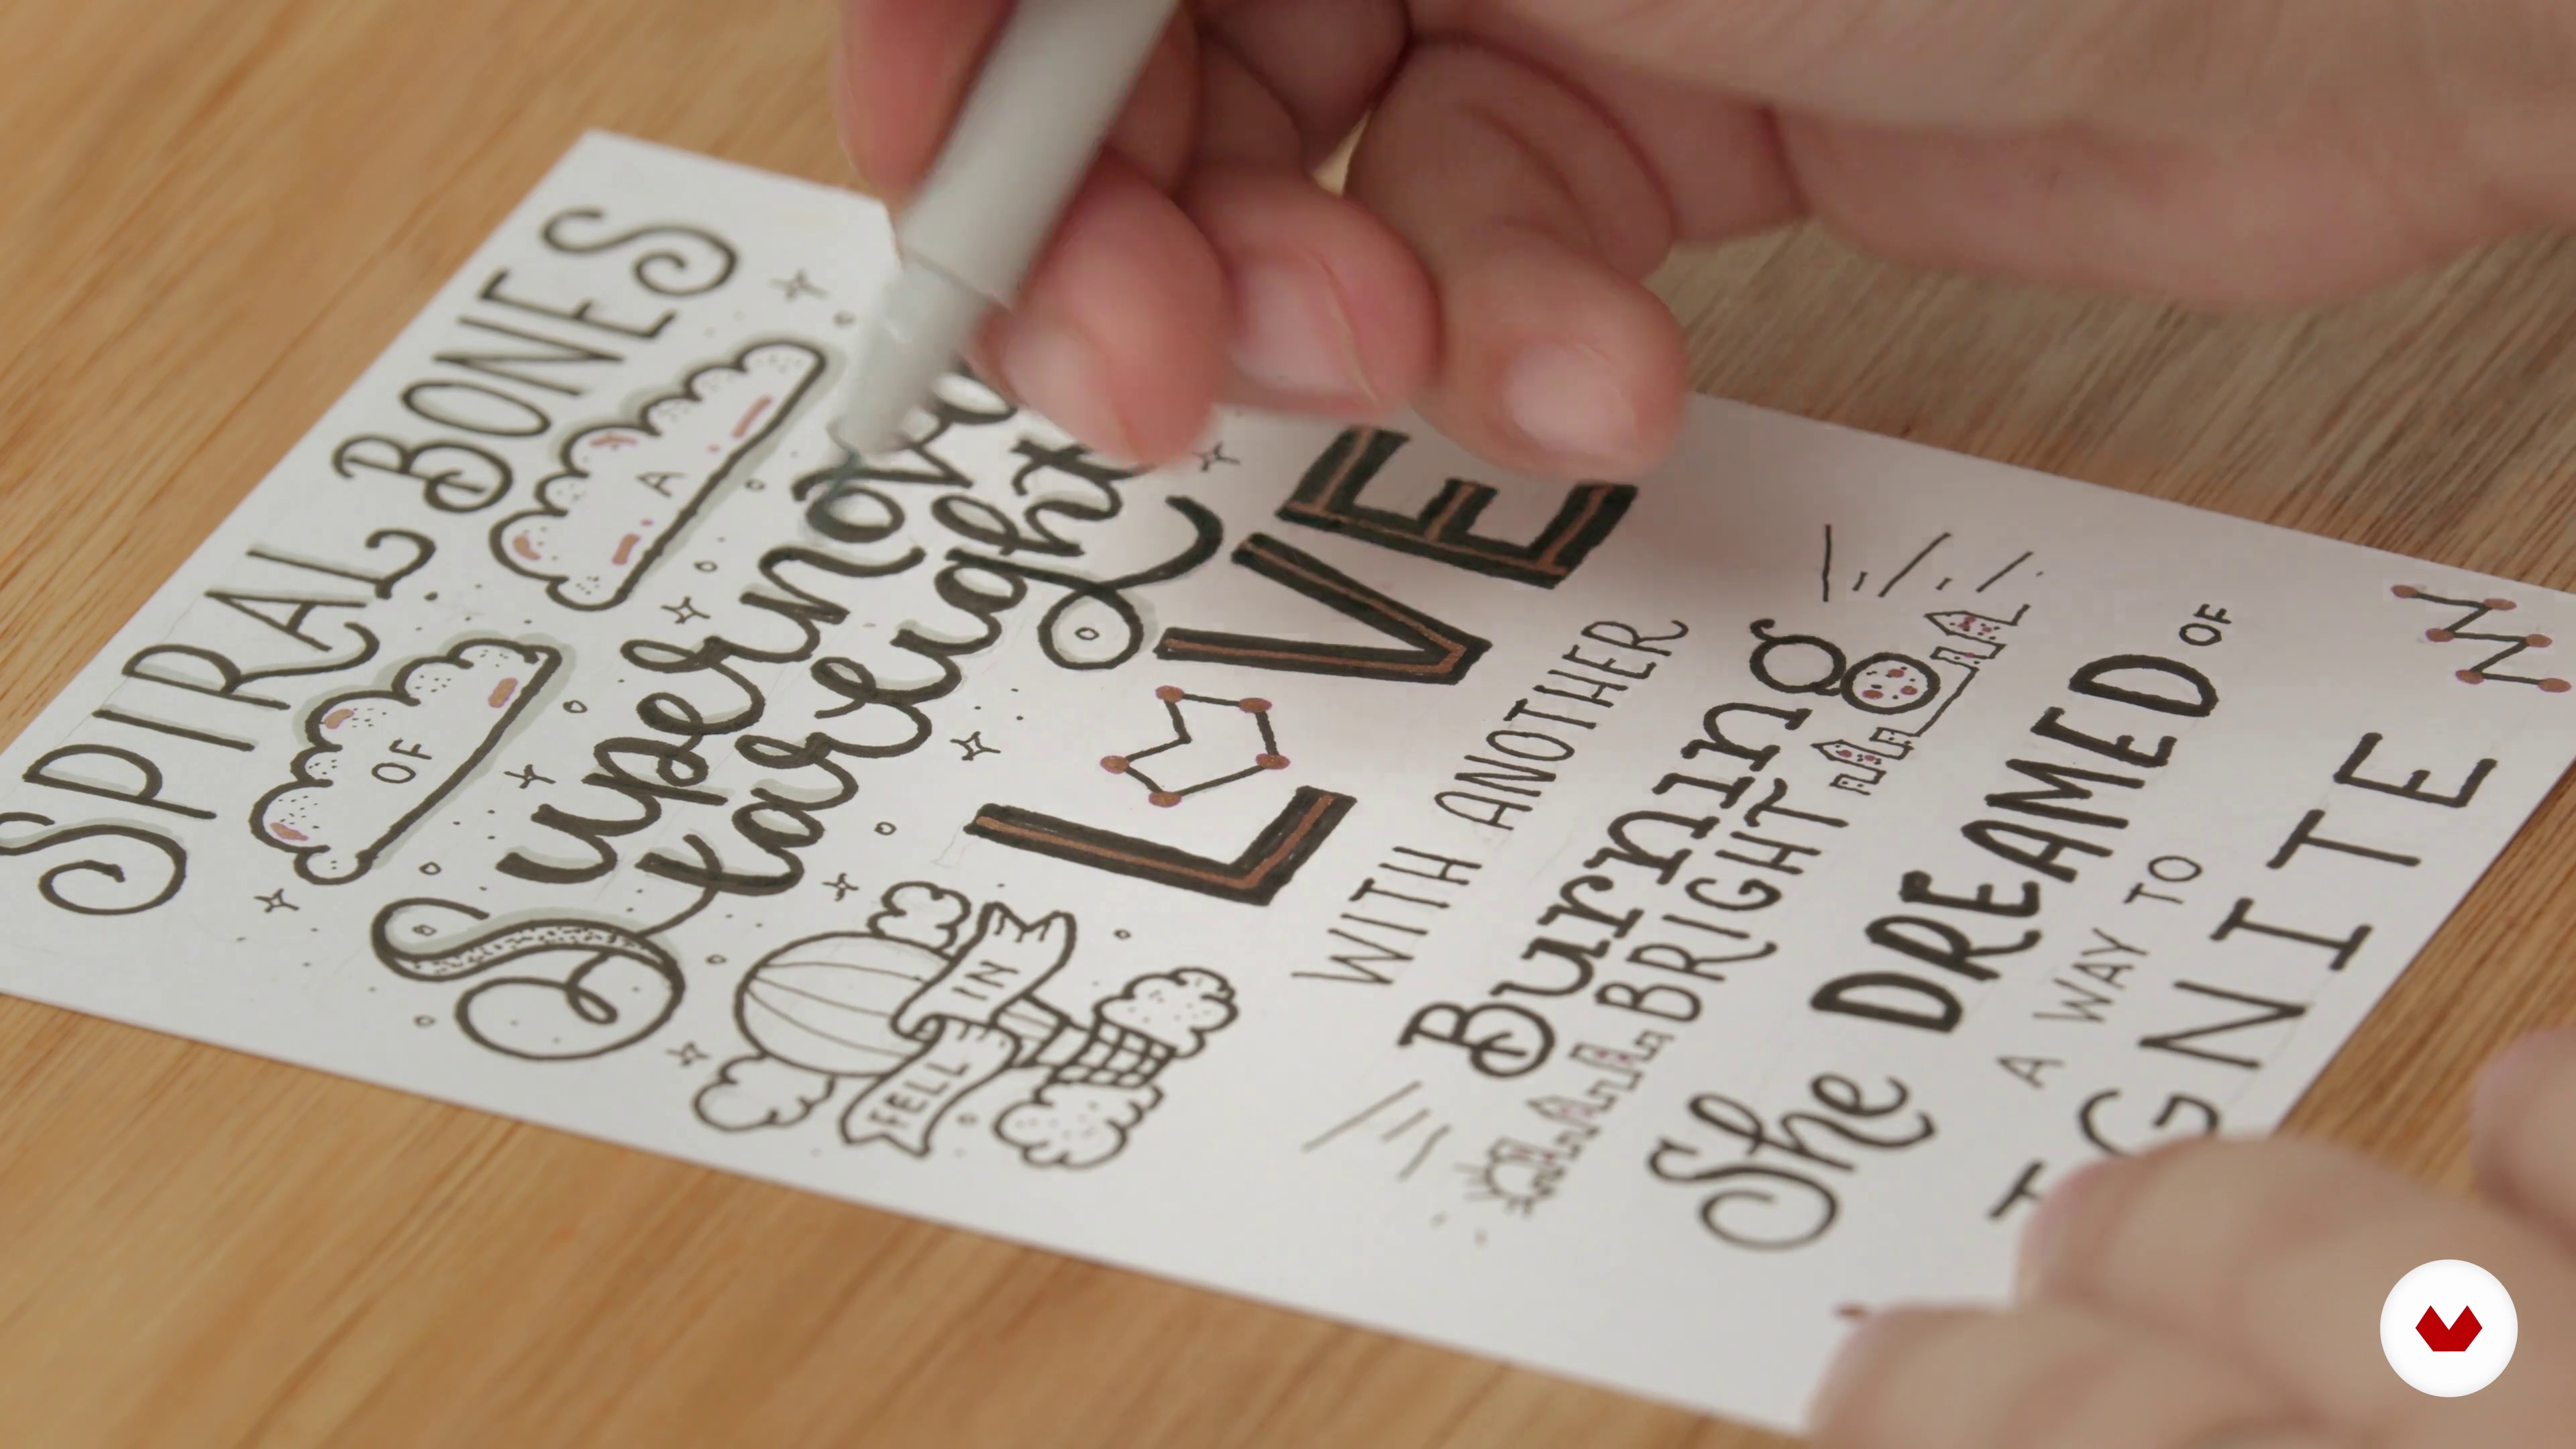 SPIRAL BONES
OF A
Supernova
Stareight
FELL IN
LOVE
WITH ANOTHER
Burning
BRIGHT
She DREAMED OF
A WAY TO
IGNITE